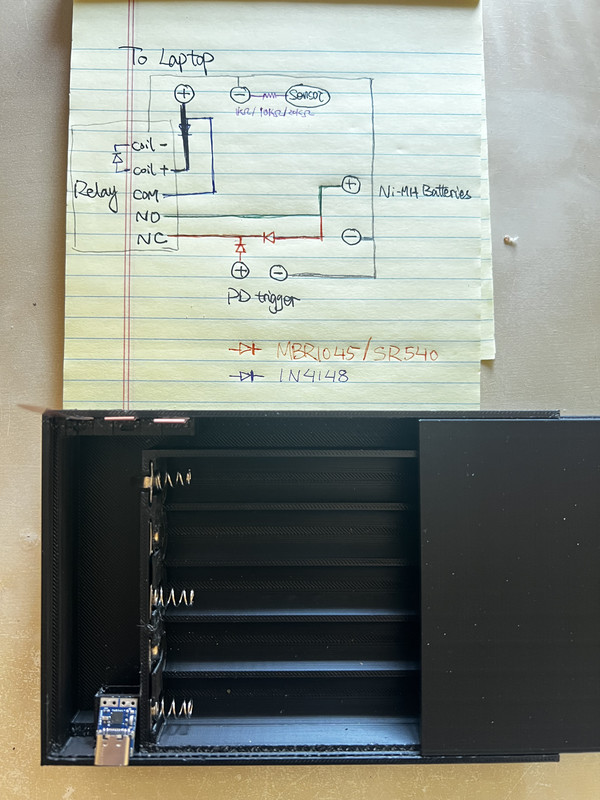 To Laptop
+
-
Sensor
1KΩ/10KΩ/20KΩ
coil -
coil +
Relay
COM
NO
NC
+
Ni-MH Batteries
-
+
-
PD trigger
MBR1045/SR540
1N4148